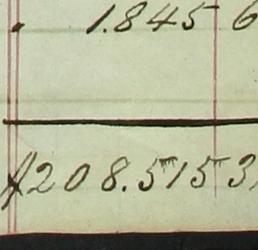 1.845 6
$208.5153